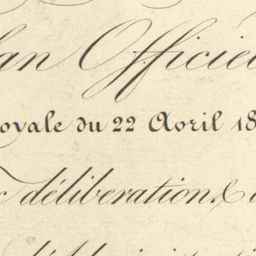 an Officiel
oyale du 22 Avril 18
délibération &